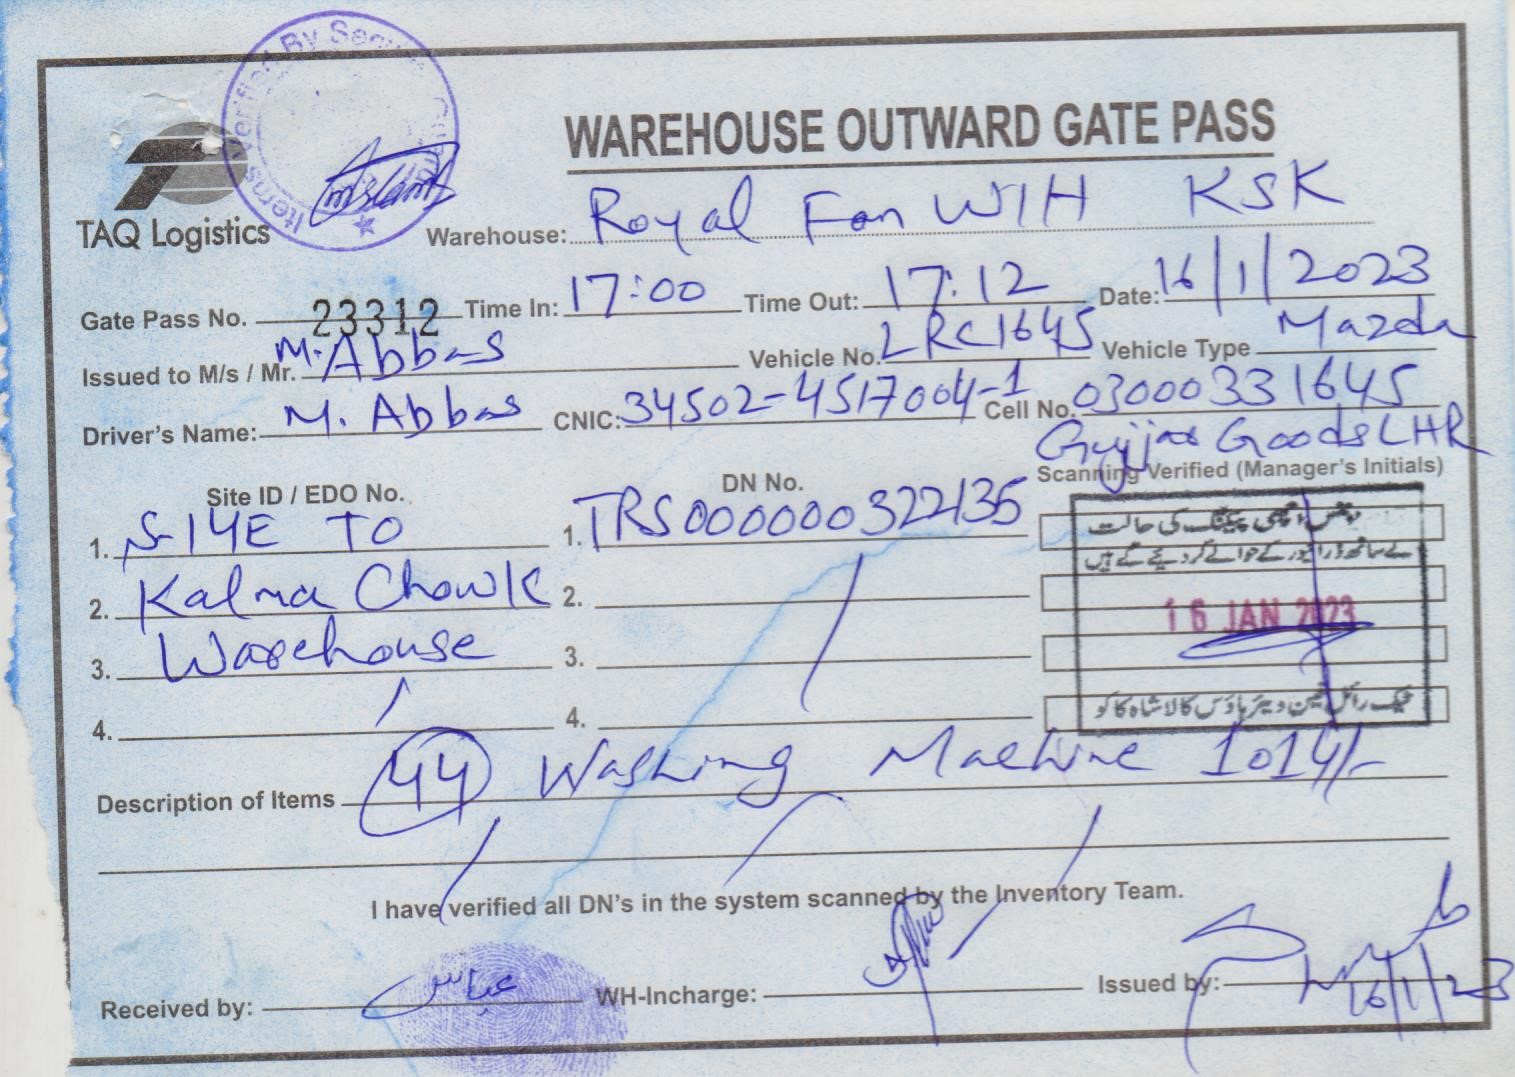 Items Verified By Security
WAREHOUSE OUTWARD GATE PASS
TAQ Logistics
Warehouse: Royal Fan W/H KSK
Gate Pass No. 23312 Time In: 17:00 Time Out: 17:12 Date: 16/1/2023
Issued to M/s / Mr. M. Abbas Vehicle No. LRC1645 Vehicle Type Mazda
Driver's Name: M. Abbas CNIC: 34502-4517004-1 Cell No. 03000331645
Gujjar Goods LHR
Site ID / EDO No. DN No. Scanning Verified (Manager's Initials)
1. S-14E TO 1. TRS000000322135
2. Kalma Chowk 2.
3. Warehouse 3.
4. 4.
اچھی پیکنگ کی حالت
کے ساتھ ڈرائیور کے حوالے کر دیئے گئے ہیں
16 JAN 2023
ٹیک رائل فین ویئر ہاؤس کالا شاہ کاکو
Description of Items 44 Washing Machine 1014/-
I have verified all DN's in the system scanned by the Inventory Team.
Received by: عباس WH-Incharge: Issued by: 16/1/23